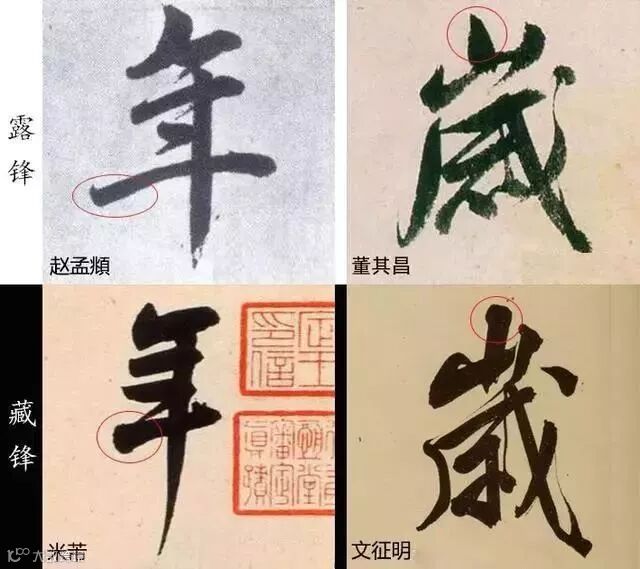 露锋
年
赵孟頫
歲
董其昌
藏锋
年
米芾
歲
文征明